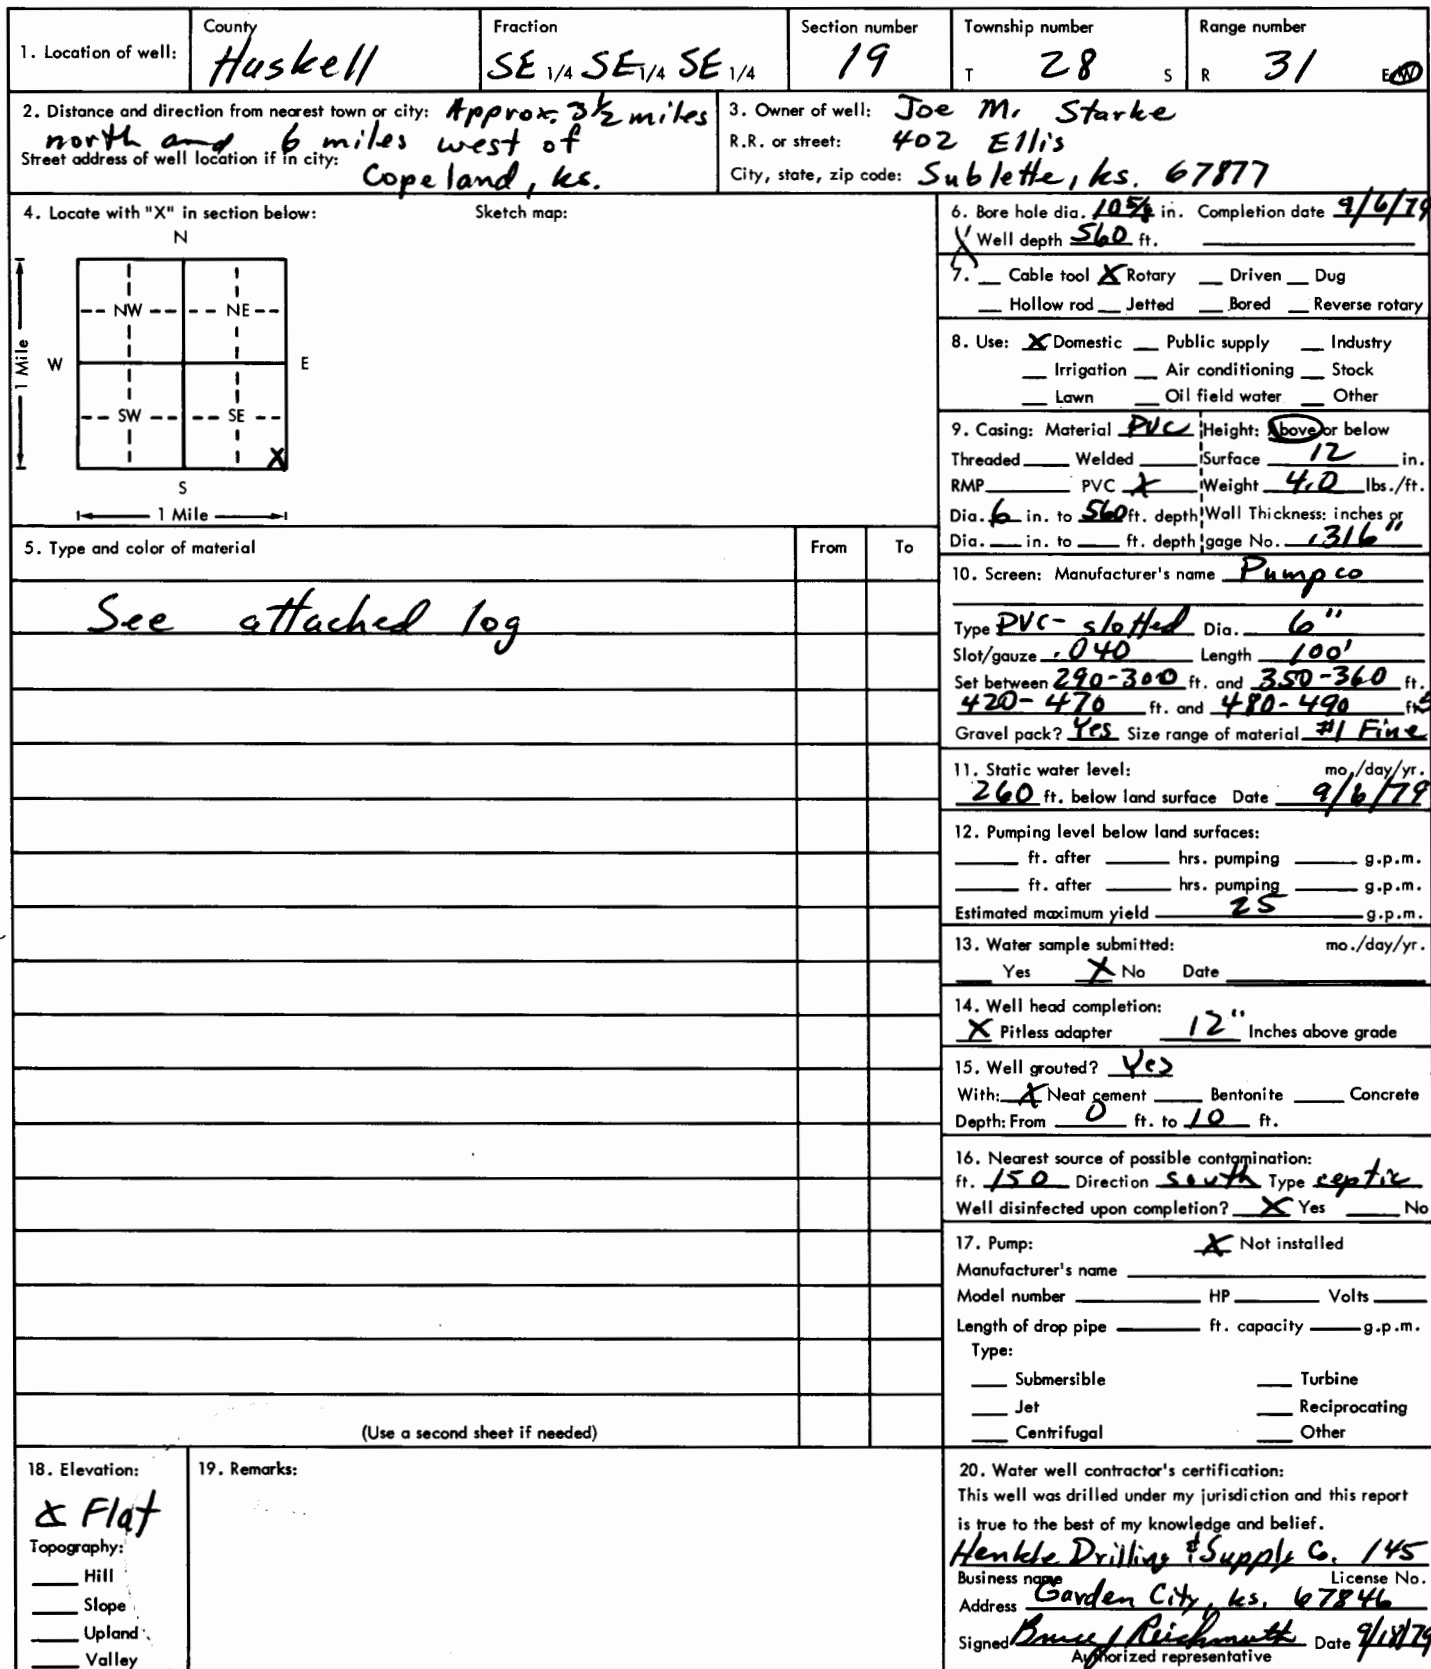 1. Location of well: County Haskell Fraction SE 1/4 SE 1/4 SE 1/4 Section number 19 Township number T 28 S Range number R 31 E W
2. Distance and direction from nearest town or city: Approx. 3 1/2 miles
north and 6 miles west of
Street address of well location if in city:
Copeland, ks.
3. Owner of well: Joe M. Starke
R.R. or street: 402 Ellis
City, state, zip code: Sublette, ks. 67877
4. Locate with "X" in section below: Sketch map:
N
NW NE
W E
1 Mile
SW SE
X
S
1 Mile
5. Type and color of material From To
See attached log
(Use a second sheet if needed)
6. Bore hole dia. 10 5/8 in. Completion date 9/6/79
Well depth 560 ft.
7. Cable tool X Rotary Driven Dug
Hollow rod Jetted Bored Reverse rotary
8. Use: X Domestic Public supply Industry
Irrigation Air conditioning Stock
Lawn Oil field water Other
9. Casing: Material PVC Height: Above or below
Threaded Welded Surface 12 in.
RMP PVC X Weight 4.0 lbs./ft.
Dia. 6 in. to 560 ft. depth Wall Thickness: inches or
Dia. in. to ft. depth gage No. .316"
10. Screen: Manufacturer's name Pumpco
Type PVC- slotted Dia. 6"
Slot/gauze .040 Length 100'
Set between 290-300 ft. and 350-360 ft.
420-470 ft. and 480-490 ft.
Gravel pack? Yes Size range of material #1 Fine
11. Static water level: mo./day/yr.
260 ft. below land surface Date 9/6/79
12. Pumping level below land surfaces:
ft. after hrs. pumping g.p.m.
ft. after hrs. pumping g.p.m.
Estimated maximum yield 25 g.p.m.
13. Water sample submitted: mo./day/yr.
Yes X No Date
14. Well head completion:
X Pitless adapter 12" Inches above grade
15. Well grouted? Yes
With: X Neat cement Bentonite Concrete
Depth: From 0 ft. to 10 ft.
16. Nearest source of possible contamination:
ft. 150 Direction south Type ceptic
Well disinfected upon completion? X Yes No
17. Pump: X Not installed
Manufacturer's name
Model number HP Volts
Length of drop pipe ft. capacity g.p.m.
Type:
Submersible Turbine
Jet Reciprocating
Centrifugal Other
18. Elevation:
Flat
Topography:
Hill
Slope
Upland
Valley
19. Remarks:
20. Water well contractor's certification:
This well was drilled under my jurisdiction and this report
is true to the best of my knowledge and belief.
Henkle Drilling & Supply Co. 145
Business name License No.
Address Garden City, ks. 67846
Signed Bruce J Reichmuth Date 9/18/79
Authorized representative